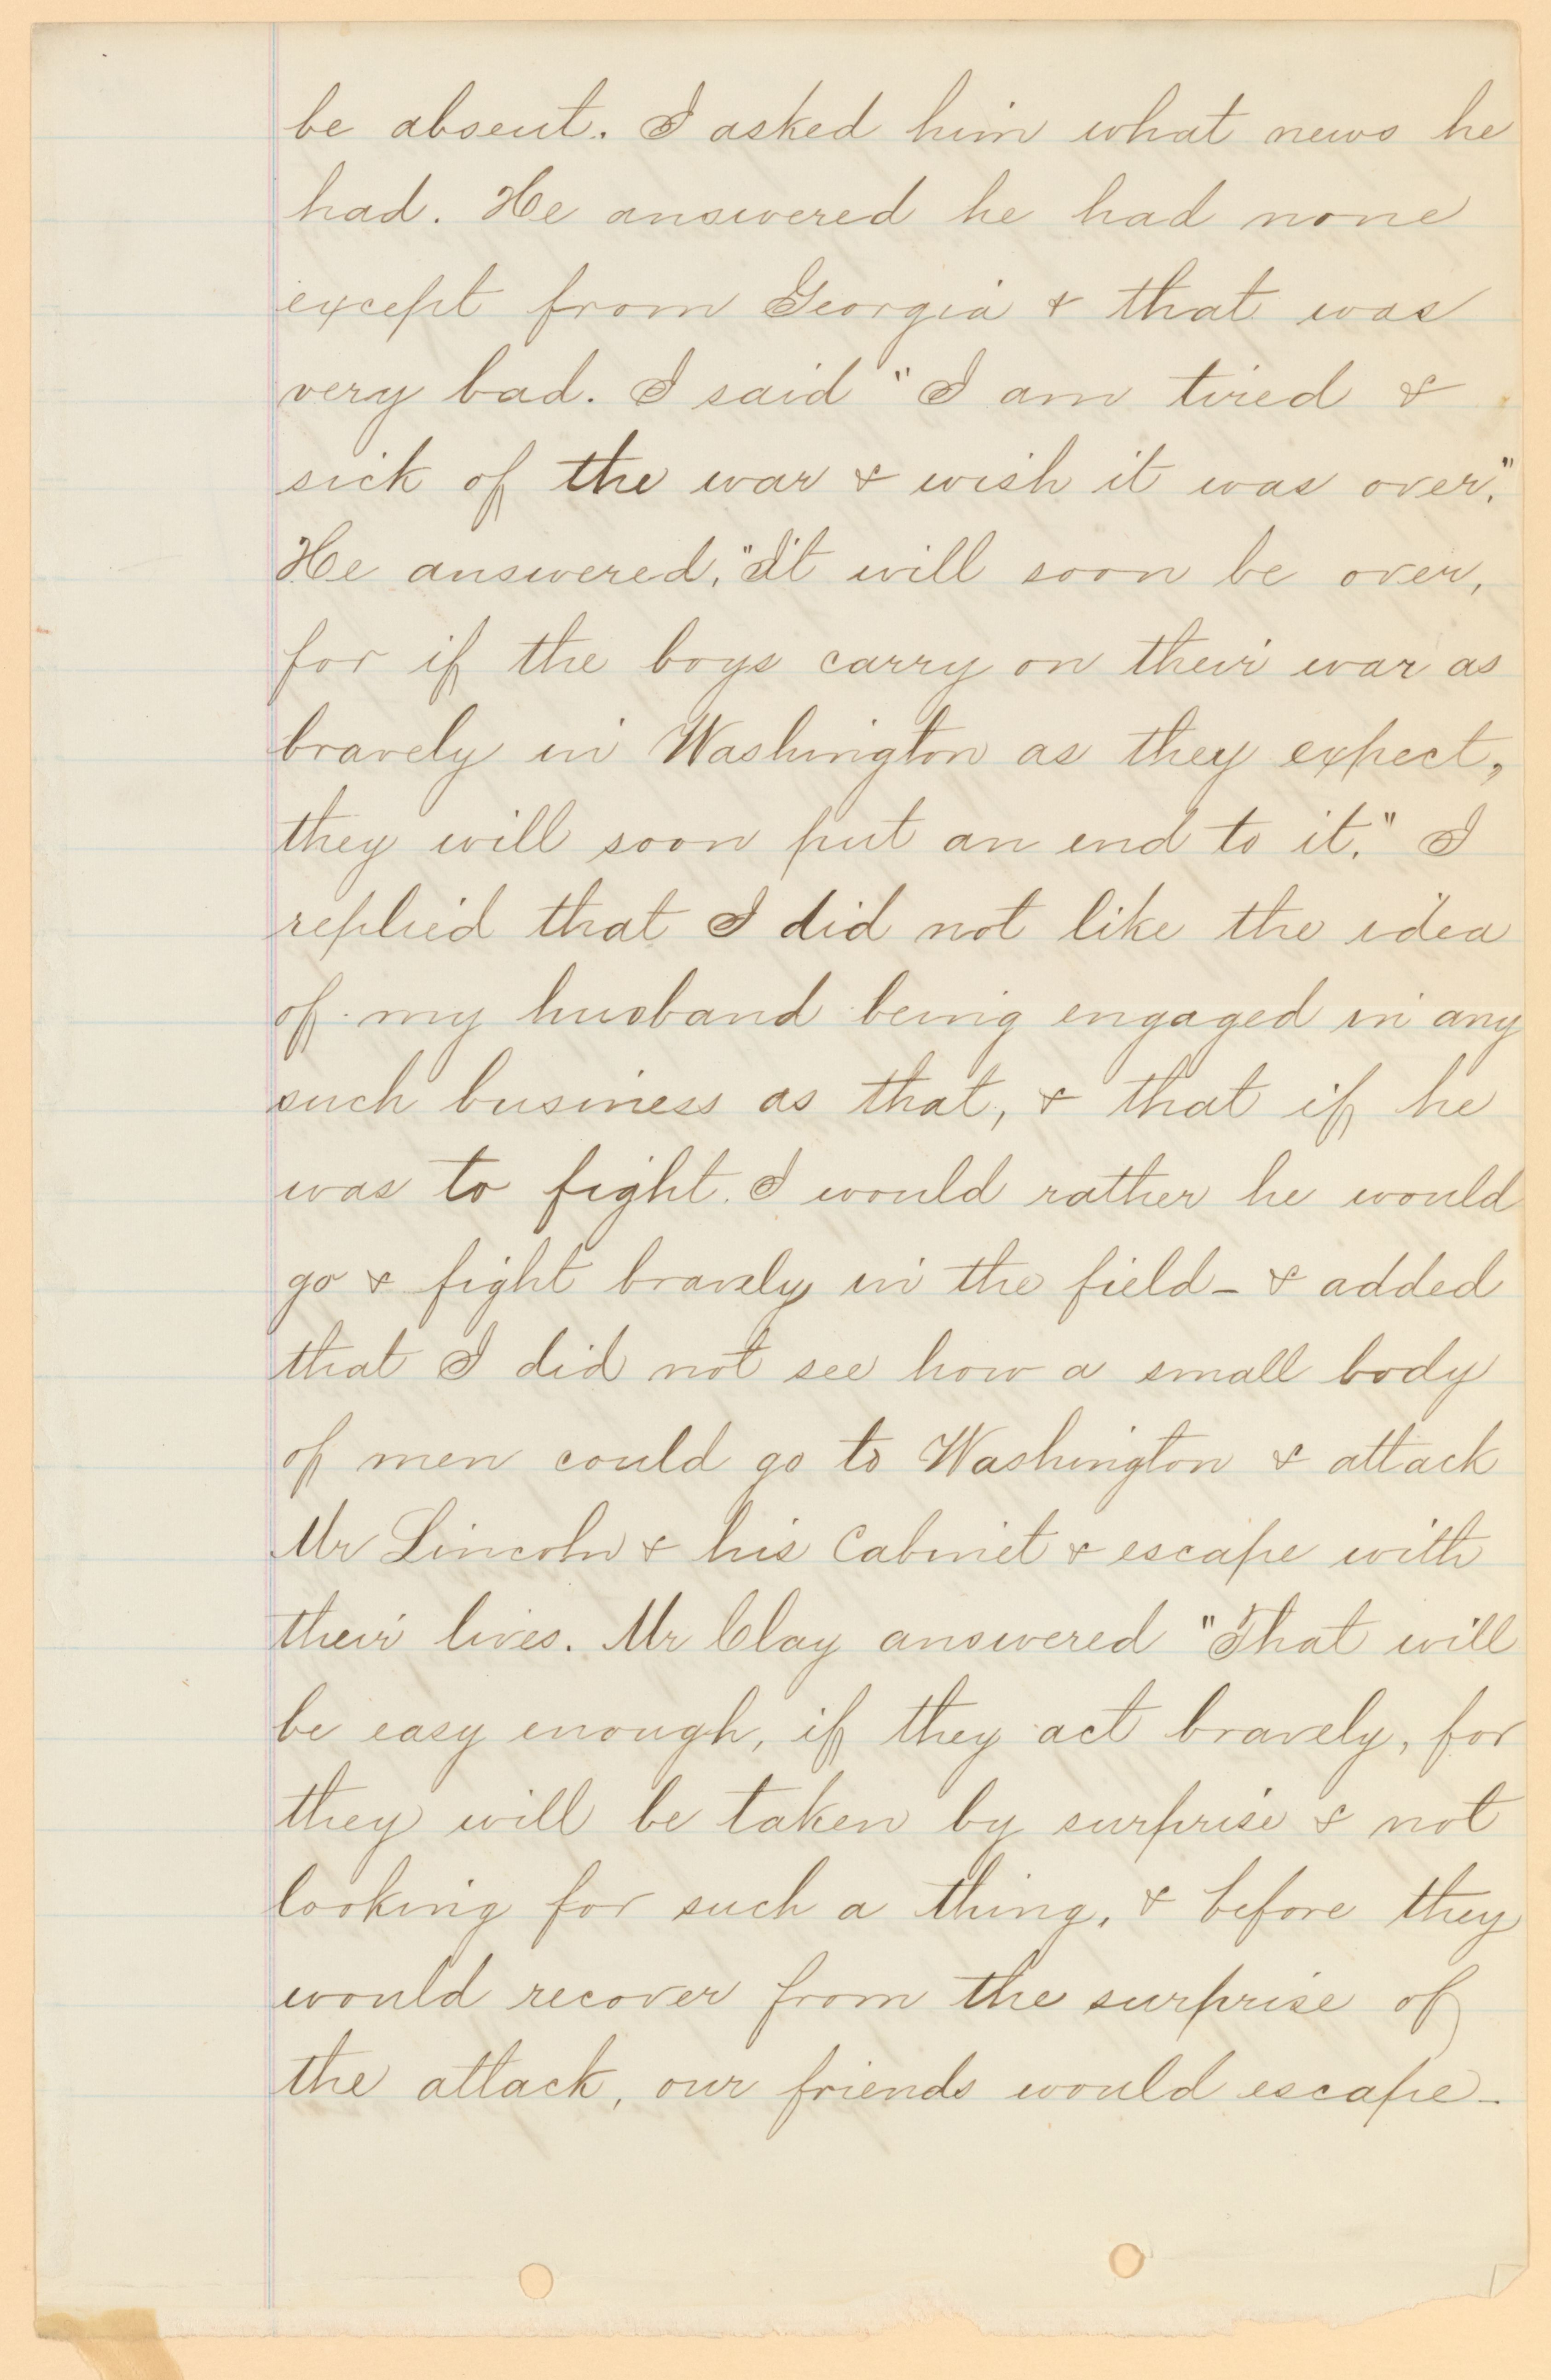 be absent. I asked him what news he
had. He answered he had none
except from Georgia & that was
very bad. I said "I am tired &
sick of the war & wish it was over."
He answered, "It will soon be over,
for if the boys carry on their war as
bravely in Washington as they expect,
they will soon put an end to it." I
replied that I did not like the idea
of my husband being engaged in any
such business as that, & that if he
was to fight. I would rather he would
go & fight bravely in the field - & added
that I did not see how a small body
of men could go to Washington & attack
Mr Lincoln & his Cabinet & escape with
their lives. Mr Clay answered "That will
be easy enough, if they act bravely, for
they will be taken by surprise & not
looking for such a thing, & before they
would recover from the surprise of
the attack, our friends would escape -